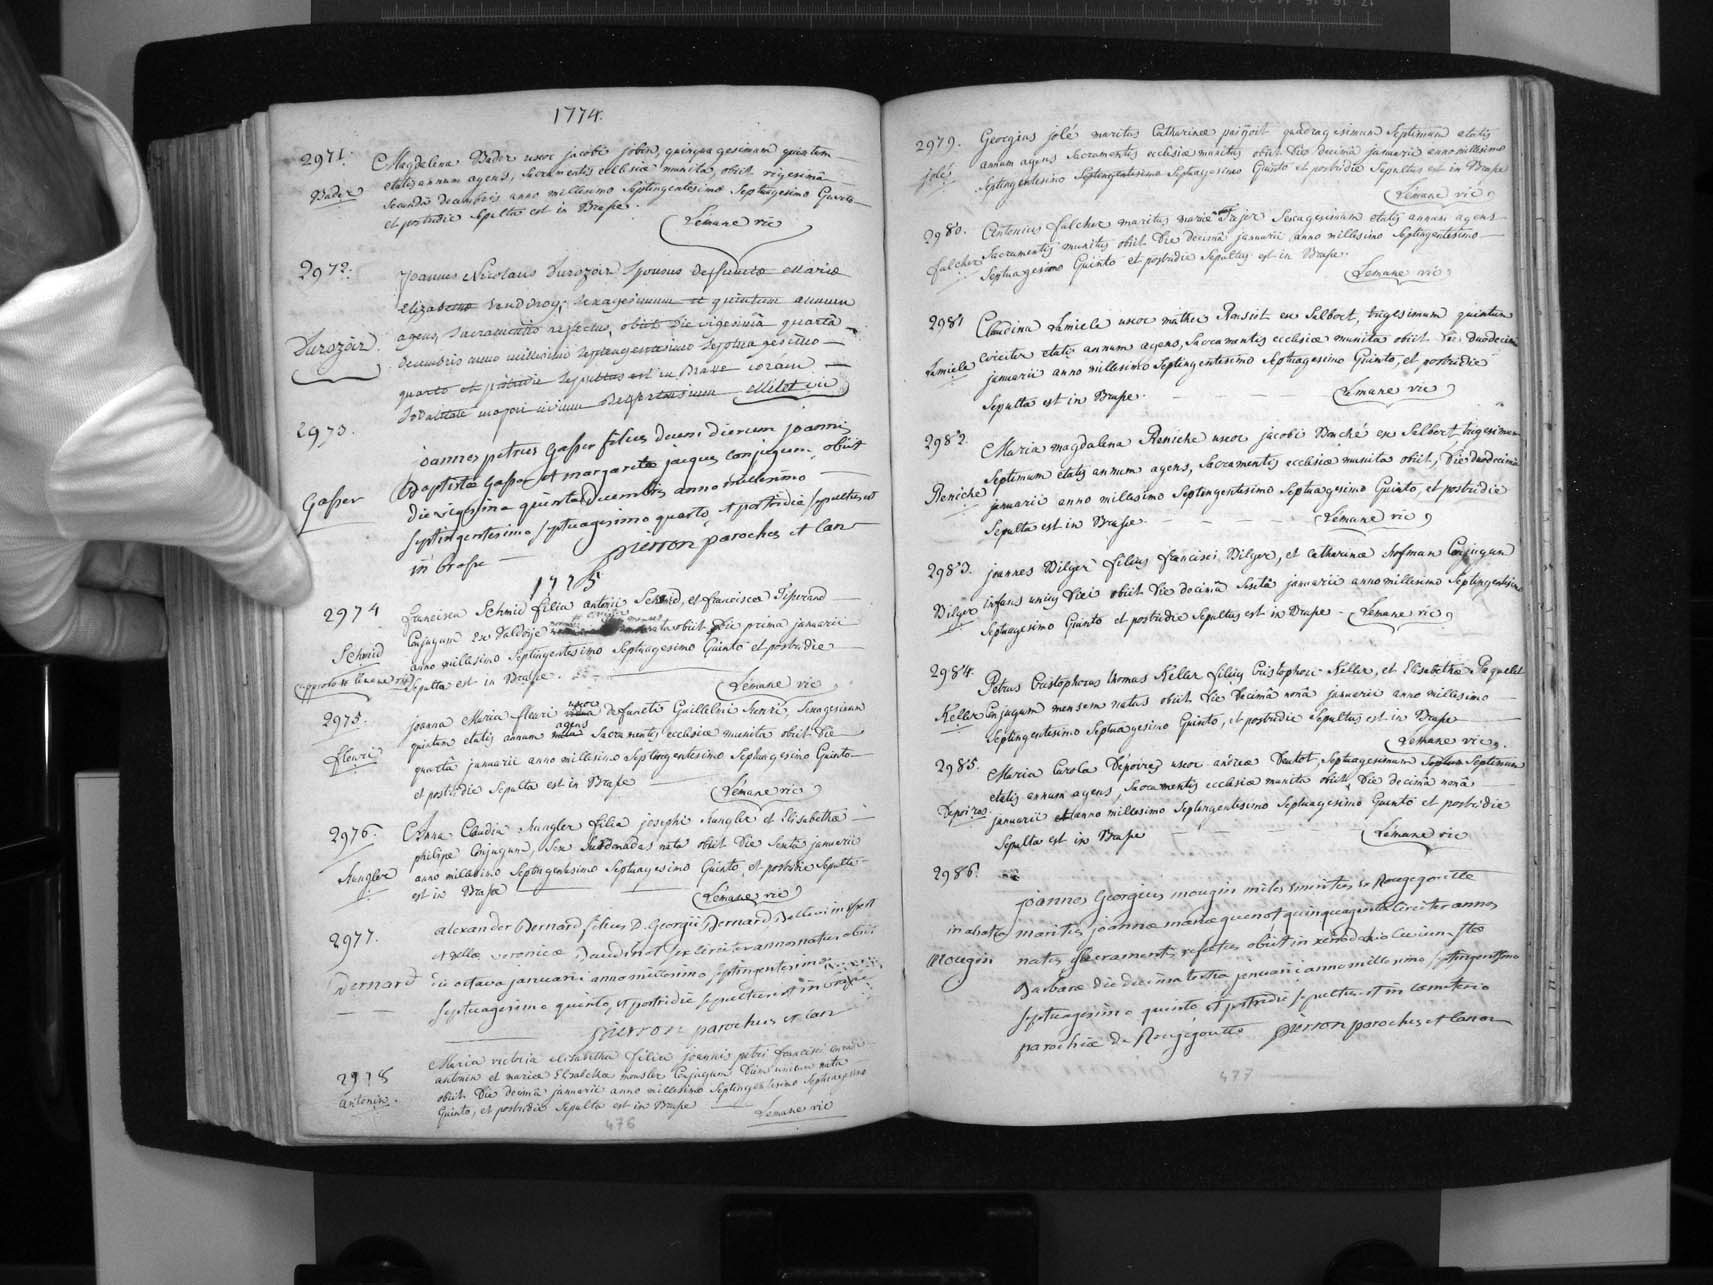 1774.
2971. Magdelena Bader uxor jacobi jobin, quinquagesimum quintum
Bader etatis annum agens, Sacramentis ecclesiæ munita, obiit vigesimâ
secundâ decembris anno millesimo Septingentesimo Septuagesimo Quarto
et postridie Sepulta est in Brasse.
Lémane vic
2972. Joannes Nicolaus Durozoir Sponsus defunctæ Mariæ
agens, Sacramentis refectus, obiit die vigesimâ quartâ
Durozoir. decembris anno millesimo Septingentesimo Septuagesimo
quarto et postridie Sepultus est in Brasse coram
Sodalitate majori
2973. joannes petrus Gasser filius duum dierum joannis
Baptistæ Gasser et margaretæ jacques conjugum, obiit
Gasser die vigesima quinta decembris anno millesimo
septingentesimo septuagesimo quarto, et postridie sepultus est
in brasse
pierron parochus et can
1775
2974 francisca Schmid filia antonii Schmid, et franciscæ
Conjugum Ex Valdoÿe obiit Die prima januarii
Schmid anno millesimo Septingentesimo Septuagesimo Quinto et postridie
Sepulta est in Brasse.
Lémane vic
2975. joanna Maria fleuri uxor defuncti Guillelmi henri Sexagesimum
quintum etatis annum agens Sacramentis ecclesiæ munita obiit Die
fleuri quartâ januarii anno millesimo Septingentesimo Septuagesimo Quinto
et postridie Sepulta est in Brasse
Lémane vic
2976. Anna Claudia Kungler filia josephi Kungler et Elisabethæ
philipe Conjugum, Sex hebdonadas nata obiit Die Sextâ januarii
Kungler anno millesimo Septingentesimo Septuagesimo Quinto et postridie Sepulta
est in Brasse
Lémane vic
2977. alexander Bernard filius D. Georgii Bernard,
et Dellæ veronicæ sex circiter annos natus obiit
Bernard die octava januarii anno millesimo septingentesimo
septuagesimo quinto, et postridie sepultus est in brasse
pierron parochus et can
Maria victoria elisabetha filia joannis petri francisci
2978 antonin et mariæ Elsabethæ monsler Conjugum Diem unicum nata
antonin. obiit Die decimâ januarii anno millesimo Septingentesimo Septuagesimo
Quinto, et postridie Sepulta est in Brasse
Lémane vic
476
2979. Georgius jolé maritus Catharinæ quadragesimum Septimum etatis
jolé annum agens Sacramentis ecclesiæ munitus obiit Die decimâ januarii anno millesimo
Septingentesimo Septingentesimo Septuagesimo Quinto et postridie Sepultus est in Brasse
Lémane vic
2980. Antonius fulcher maritus mariæ Sexagesimum etatis annum agens
fulcher Sacramentis munitus obiit Die decimâ januarii anno millesimo Septingentesimo
Septuagesimo Quinto et postridie Sepultus est in Brasse.
Lémane vic
2981 Claudina Lamiele uxor mathei Ronsist ex Salbert, trigesimum quintum
Lamiele circiter etatis annum agens, Sacramentis ecclesiæ munita obiit Die duodecimâ
januarii anno millesimo Septingentesimo Septuagesimo Quinto, et postridie
Sepulta est in Brasse.
Lémane vic
2982. Maria magdalena Reniche uxor jacobi Bouché ex Salbert trigesimum
Septimum etatis annum agens, Sacramentis ecclesiæ munita obiit, Die duodecimâ
Reniche januarii anno millesimo Septingentesimo Septuagesimo Quinto, et postridie
Sepulta est in Brasse.
Lémane vic
2983. joannes Bilger filius francisci Bilger, et catharinæ hofman Conjugum
Bilger infans unius Diei obiit Die decimâ Sextâ januarii anno millesimo Septingentesimo
Septuagesimo Quinto et postridie Sepultus est in Brasse. Lémane vic
2984. Petrus Cristophorus thomas Keller filius Cristophori Keller, et Elisabethæ Paquelet
Keller Conjugum mensem natus obiit Die Decimâ nonâ januarii anno millesimo
Septingentesimo Septuagesimo Quinto, et postridie Sepultus est in Brasse
Lémane vic.
2985. Maria Carola Dépoires uxor andreæ Deutot, Septuagesimum Septimum
etatis annum agens, Sacramentis ecclesiæ munita obiit Die decimâ nonâ
Depoires. januarii anno millesimo Septingentesimo Septuagesimo Quinto et postridie
Sepulta est in Brasse
Lémane vic
2986. joannes Georgius mougin miles emeritus ex Rougegoutte
maritus joannæ mariæ quenot quinquaginta circiter annos
Mougin natus sacramentis refectus obiit in xenodochio civium Stæ
Barbaræ die decima tertia januarii anno millesimo septingentesimo
septuagesimo quinto et postridie sepultus est in cœmeterio
parochiæ de Rougegoutte pierron parochus et canon
477